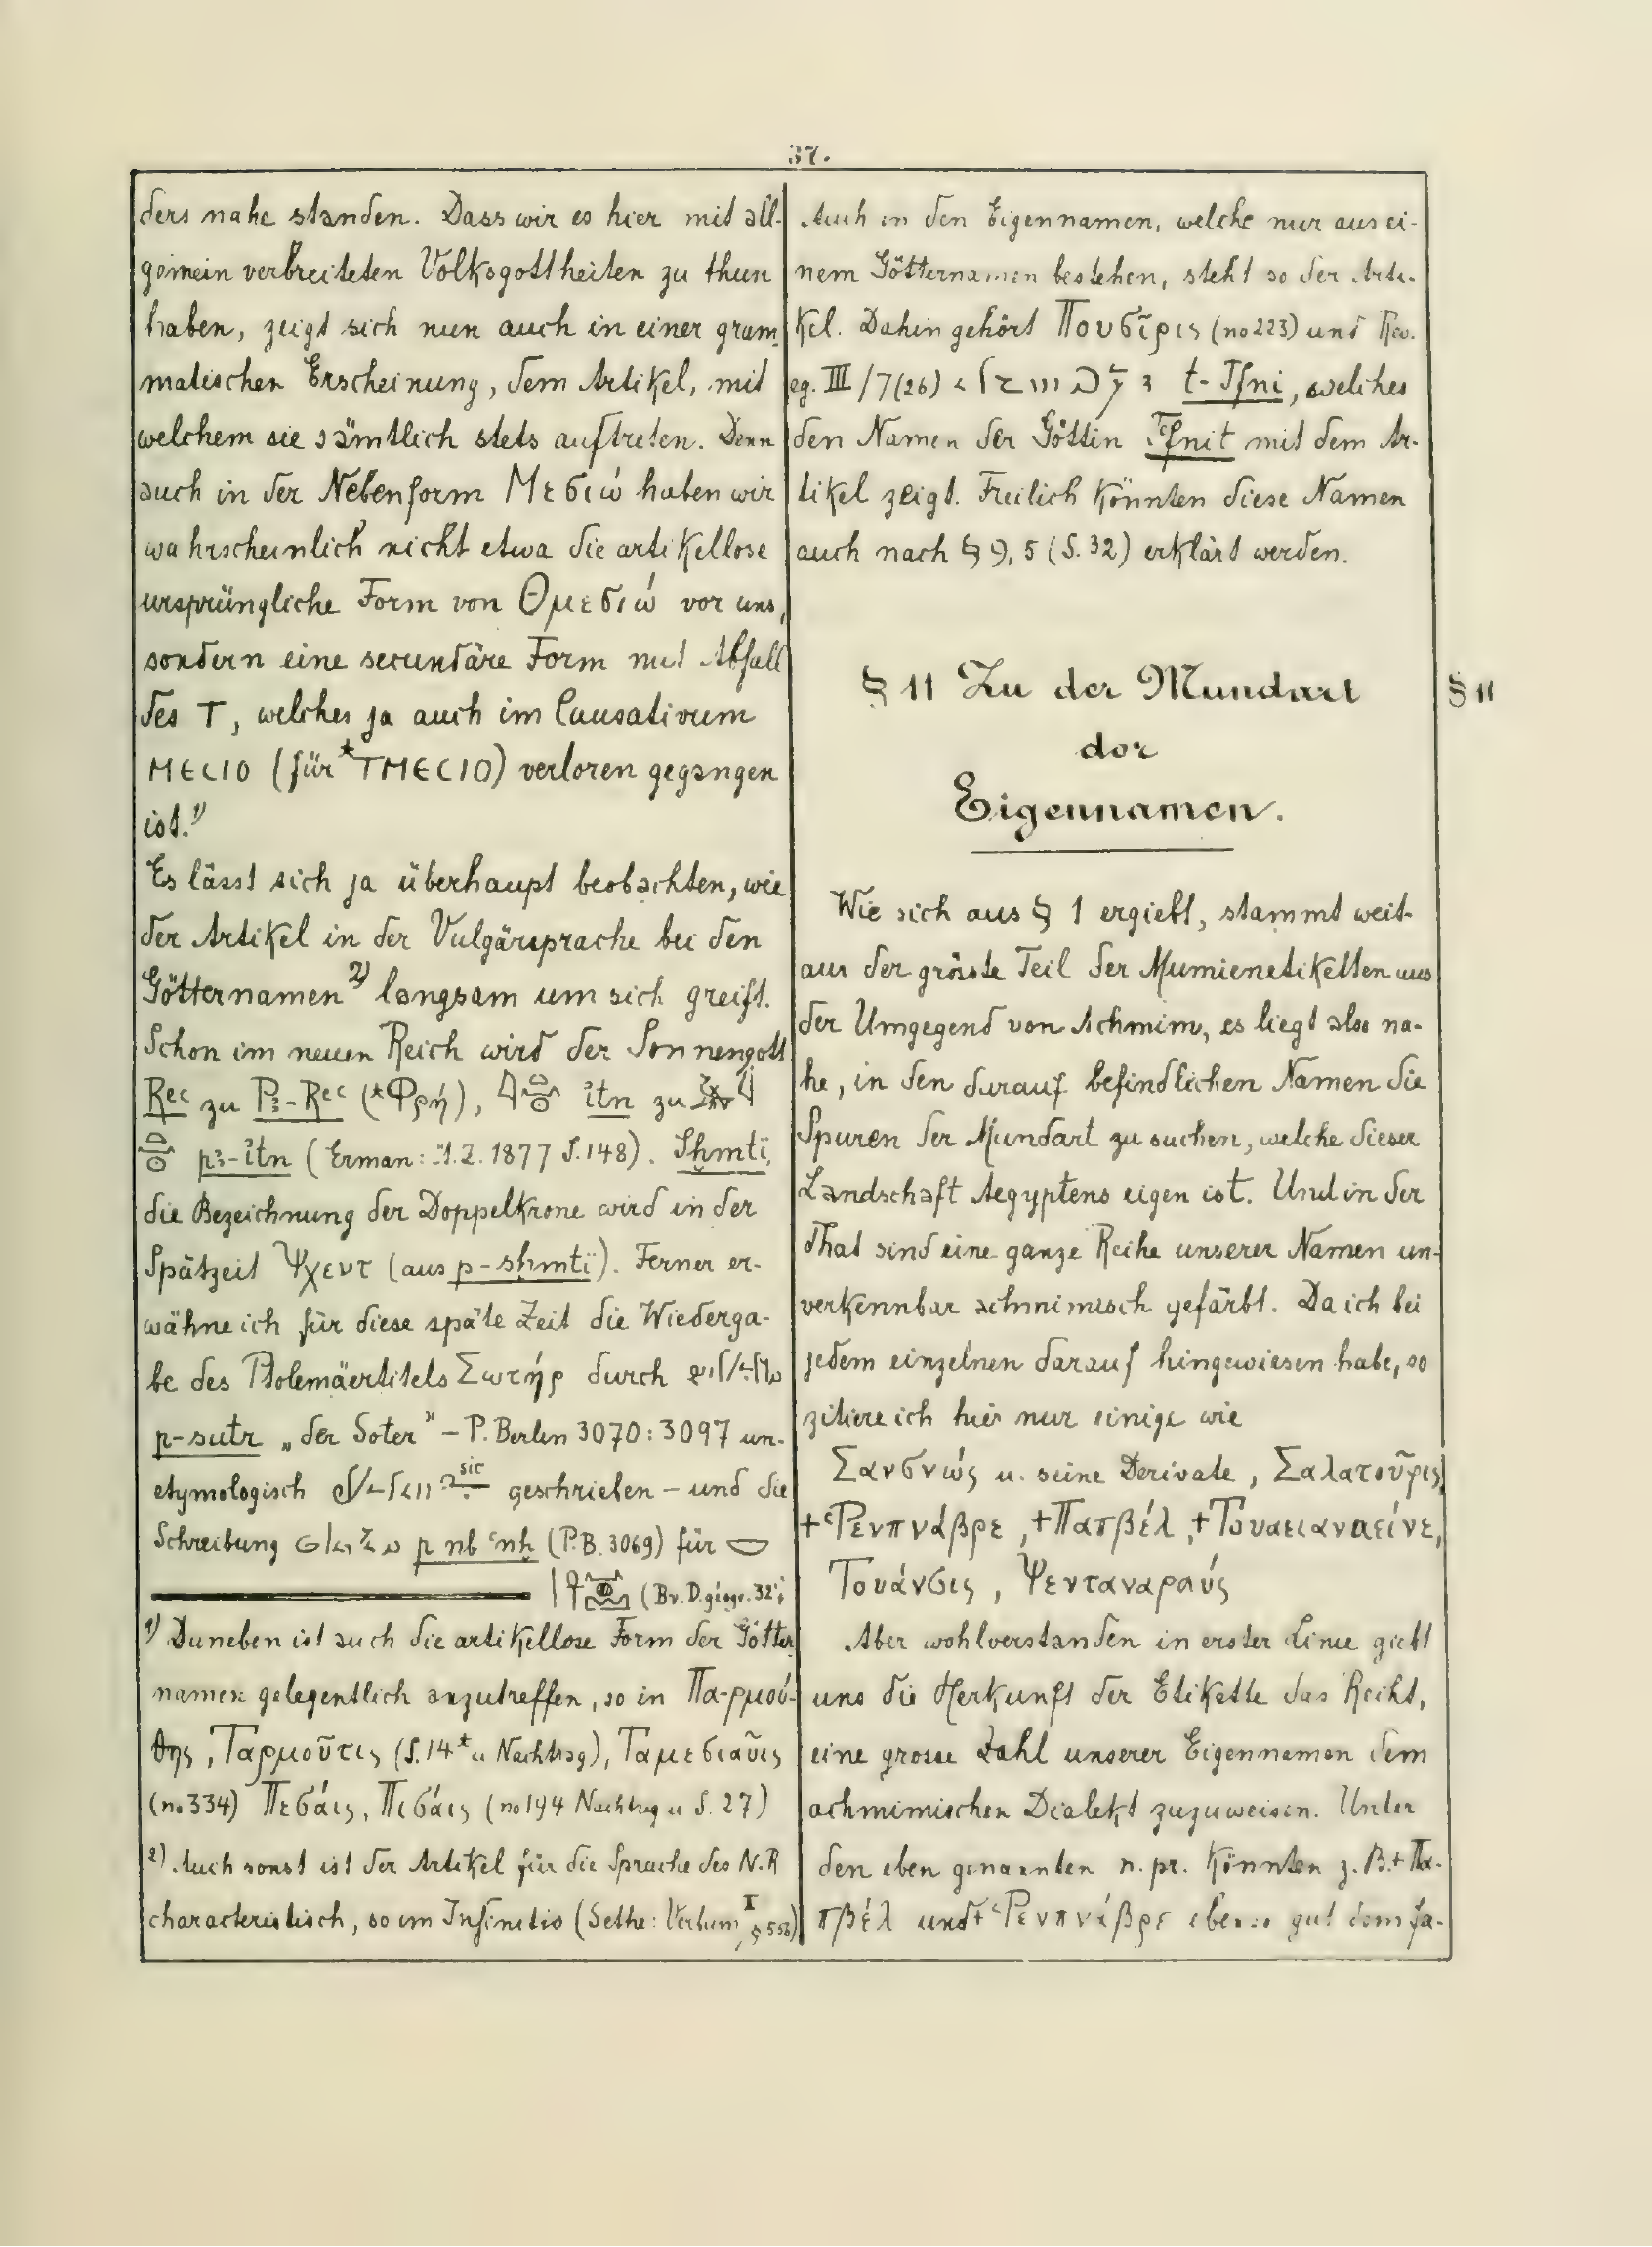 37.
ders nahe standen. Dass wir es hier mit all-
gemein verbreiteten Volksgottheiten zu thun
haben, zeigt sich nun auch in einer gram-
matischen Erscheinung, dem Artikel, mit
welchem sie sämtlich stets auftreten. Denn
auch in der Nebenform Μεσιώ haben wir
wahrscheinlich nicht etwa die artikellose
ursprüngliche Form von Θμεσιώ vor uns,
sondern eine secundäre Form mit Abfall
des T, welches ja auch im Causativum
ⲙⲉⲥⲓⲟ (für *ⲧⲙⲉⲥⲓⲟ) verloren gegangen
ist.¹⁾
Es lässt sich ja überhaupt beobachten, wie
der Artikel in der Vulgärsprache bei den
Götternamen²⁾ langsam um sich greift.
Schon im neuen Reich wird der Sonnengott
Rec zu P3-Rec (*Φρή), itn zu
p3-itn (Erman: Ä.Z. 1877 S. 148). Sḫmti,
die Bezeichnung der Doppelkrone wird in der
Spätzeit Ψχεντ (aus p-sḫmti). Ferner er-
wähne ich für diese späte Zeit die Wiederga-
be des Ptolemäertitels Σωτήρ durch
p-sutr „der Soter" – P. Berlin 3070: 3097 un-
etymologisch sic geschrieben – und die
Schreibung p nb ʿnḫ (P.B. 3069) für
(Br. D. géogr. 32)
1) Daneben ist auch die artikellose Form der Götter-
namen gelegentlich anzutreffen, so in Πα-ρμού-
θης, Ταρμοῦτις (S. 14* u Nachtrag), Ταμεσιαῦις
(no 334) Πεσάις, Πισάις (no 194 Nachtrag u S. 27)
2) Auch sonst ist der Artikel für die Sprache des N.R
characteristisch, so im Infinitiv (Sethe: Verbum I, § 556)
Auch in den Eigennamen, welche nur aus ei-
nem Götternamen bestehen, steht so der Arti-
kel. Dahin gehört Πουσῖρις (no 223) und Rev.
eg. III/7(26) t-Tfni, welches
den Namen der Göttin Tfnit mit dem Ar-
tikel zeigt. Freilich könnten diese Namen
auch nach § 9, 5 (S. 32) erklärt werden.
§ 11 Zu der Mundart
der
Eigennamen.
§ 11
Wie sich aus § 1 ergiebt, stammt weit-
aus der grösste Teil der Mumienetiketten aus
der Umgegend von Achmim, es liegt also na-
he, in den darauf befindlichen Namen die
Spuren der Mundart zu suchen, welche dieser
Landschaft Aegyptens eigen ist. Und in der
That sind eine ganze Reihe unserer Namen un-
verkennbar achmimisch gefärbt. Da ich bei
jedem einzelnen darauf hingewiesen habe, so
zitiere ich hier nur einige wie
Σανσνώς u. seine Derivate, Σαλατοῦρις,
+Ῥενπνάβρε, +Πατβέλ,
Τουάνσις, Ψενταναραύς
Aber wohlverstanden in erster Linie giebt
uns die Herkunft der Etikette das Recht,
eine grosse Zahl unserer Eigennamen dem
achmimischen Dialekt zuzuweisen. Unter
den eben genannten n. pr. könnten z. B. +Πα-
τβέλ und +Ῥενπνάβρε ebenso gut dem fa-